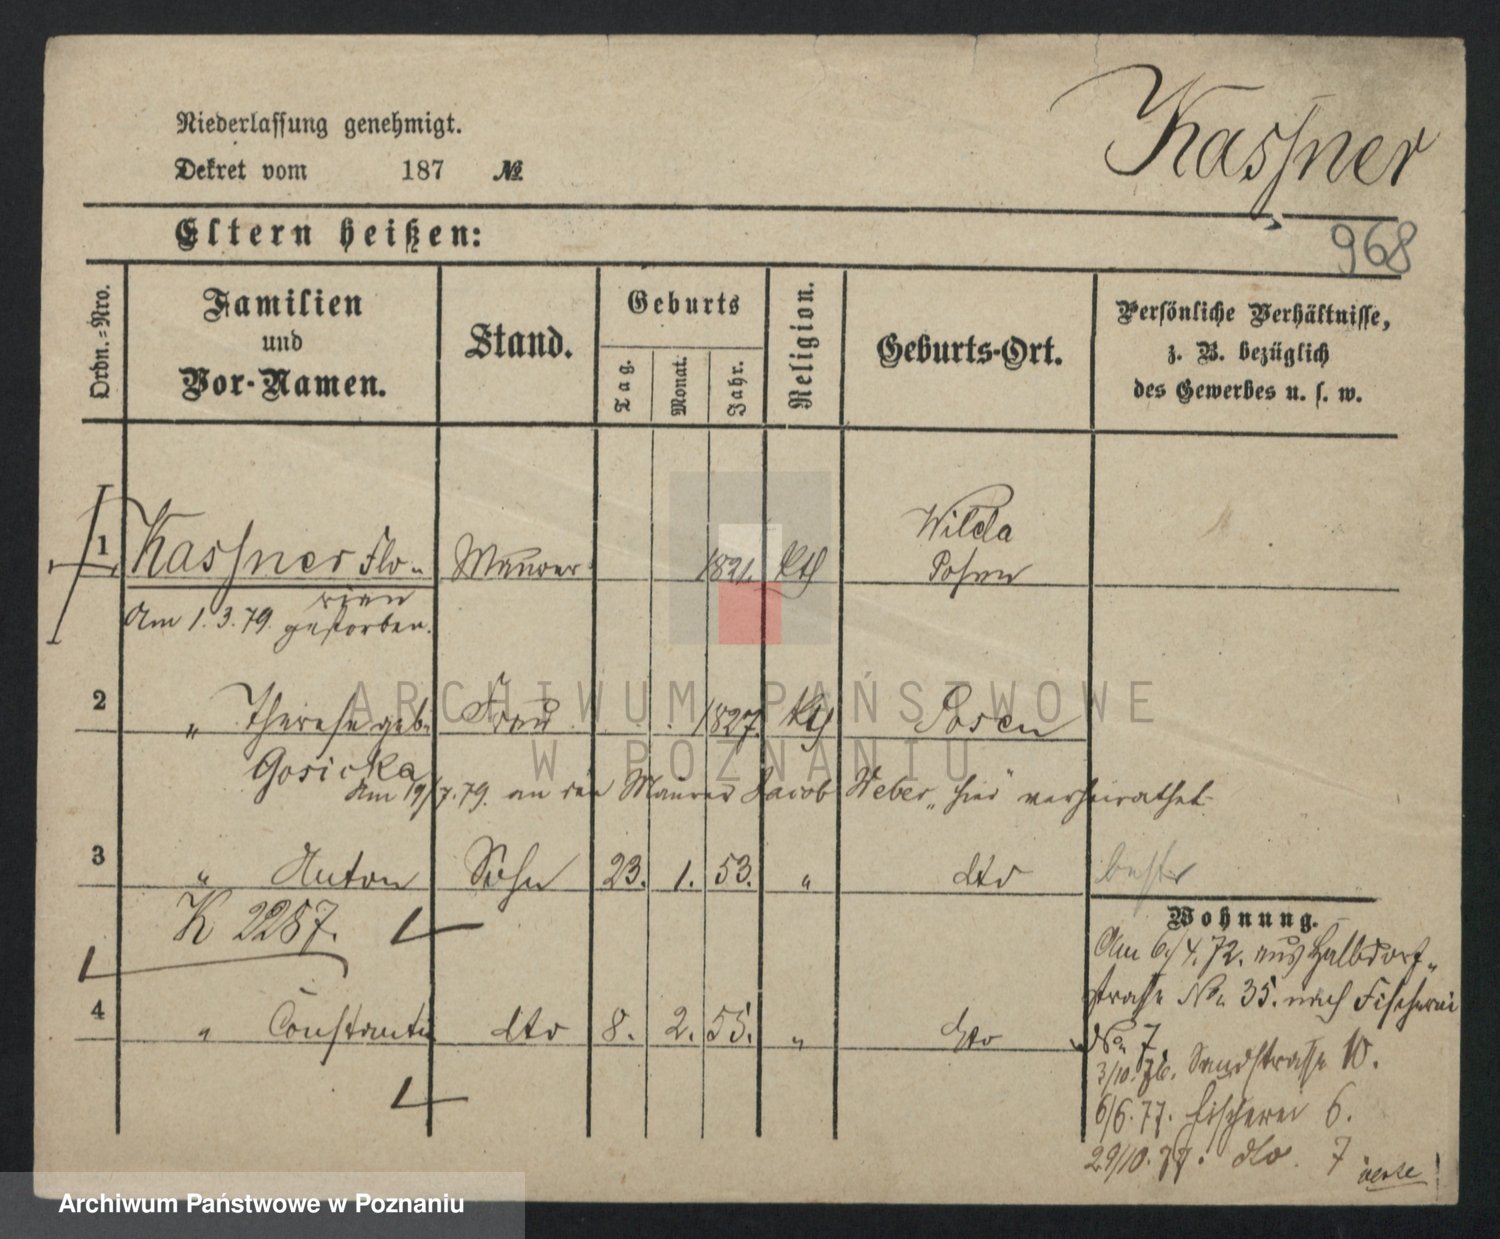 Niederlassung genehmigt.
Dekret vom 187 №
Kassner
968
Eltern heißen:
Ordn.=Nro.
Familien
und
Vor-Namen.
Stand.
Geburts
Tag.
Monat.
Jahr.
Religion.
Geburts-Ort.
Persönliche Verhältnisse,
z. B. bezüglich
des Gewerbes u. s. w.
Wilda
1 Kassner Flo- Maurer 1821. Kth Posen
rian
Am 1.3.79. gestorben.
2 " Therese geb. Frau 1827. Kth Posen
Gosicka
Am 19/7.79. an den Maurer Jacob Weber, hier verheirathet
3 " Anton Sohn 23. 1. 53. " dto
K 2287.
Wohnung.
Am 6/4.72. aus Halbdorf-
strasse No. 35. nach Fischerei
4 " Constantin dto 8. 2. 55. " dto
No 7.
3/10.76. Sandstrasse 10.
6/6.77. Fischerei 6.
29/10.77. do. 7
ARCHIWUM PAŃSTWOWE
W POZNANIU
Archiwum Państwowe w Poznaniu